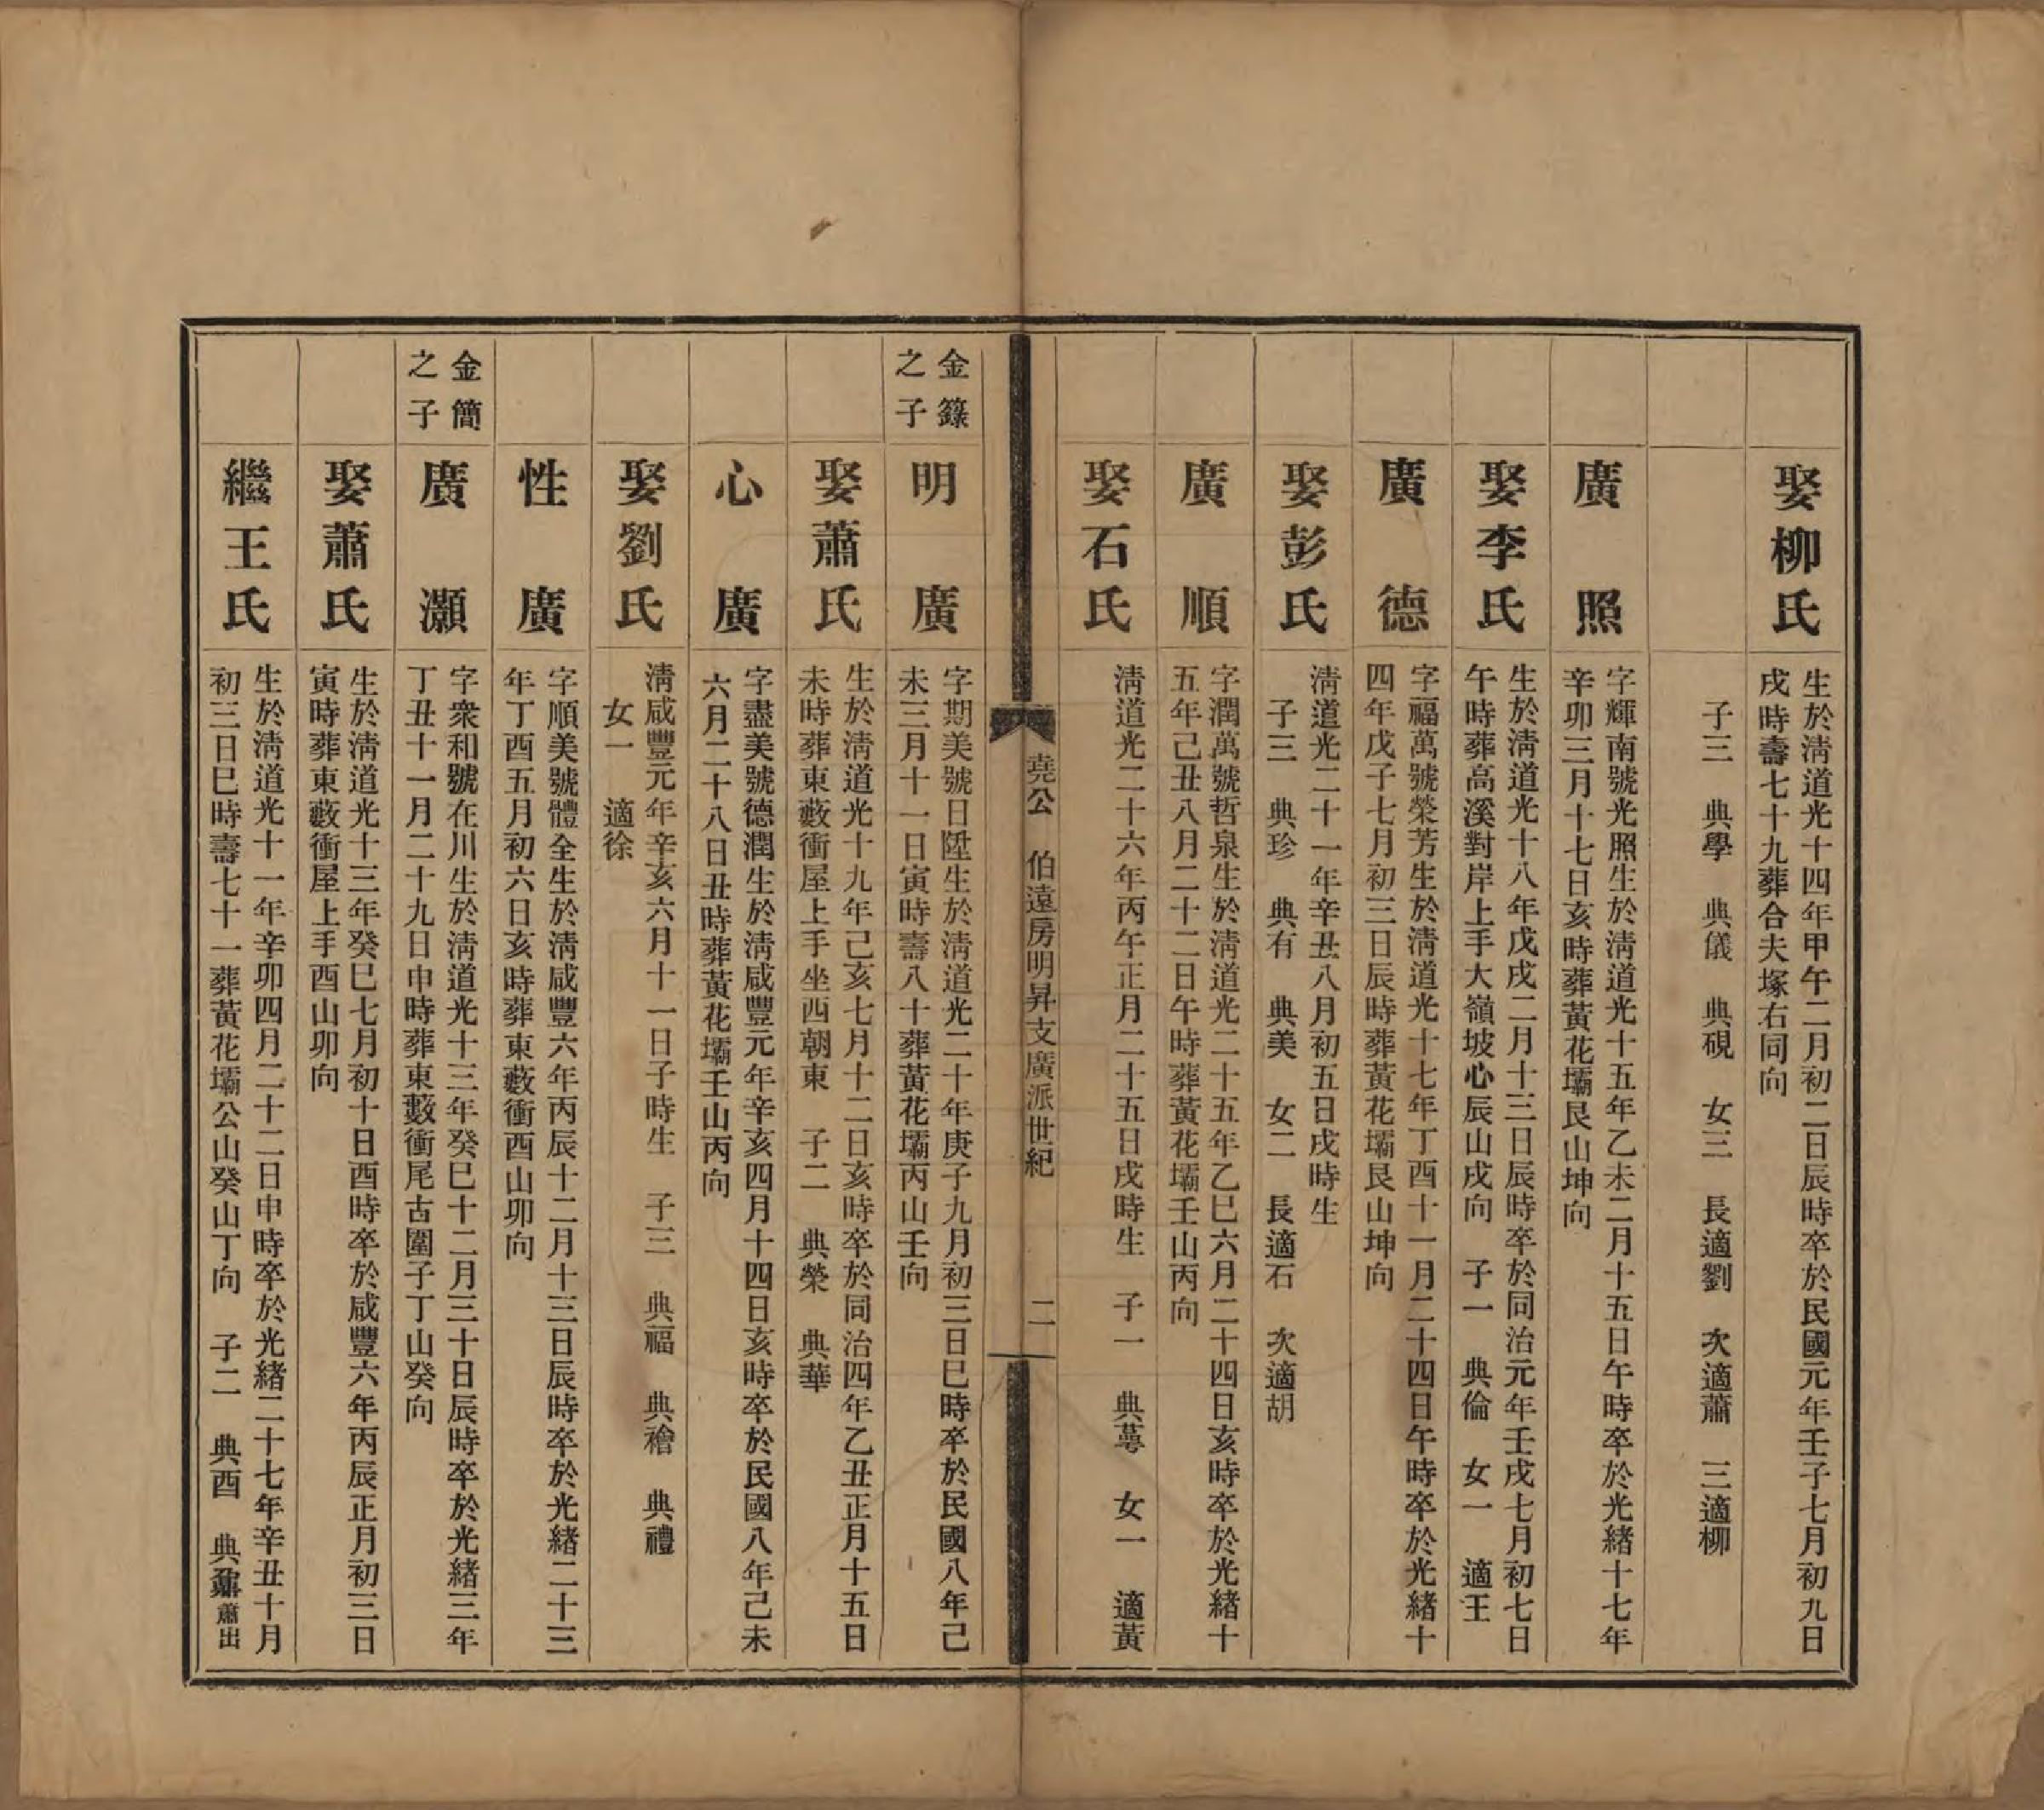 娶柳氏
生於淸道光十四年甲午二月初二日辰時卒於民國元年壬子七月初九日
戌時壽七十九葬合夫塚右同向
子三　典學　典儀　典硯　女三　長適劉　次適蕭　三適柳
廣照
字輝南號光照生於淸道光十五年乙未二月十五日午時卒於光緒十七年
辛卯三月十七日亥時葬黃花壩艮山坤向
娶李氏
生於淸道光十八年戊戌二月十三日辰時卒於同治元年壬戌七月初七日
午時葬高溪對岸上手大嶺坡心辰山戌向　子一　典倫　女一　適王
廣德
字福萬號榮芳生於淸道光十七年丁酉十一月二十四日午時卒於光緒十
四年戊子七月初三日辰時葬黃花壩艮山坤向
娶彭氏
淸道光二十一年辛丑八月初五日戌時生
子三　典珍　典有　典美　女二　長適石　次適胡
廣順
字潤萬號哲泉生於淸道光二十五年乙巳六月二十四日亥時卒於光緒十
五年己丑八月二十二日午時葬黃花壩壬山丙向
娶石氏
淸道光二十六年丙午正月二十五日戌時生　子一　典蕚　女一　適黃
堯公　伯遠房明昇支廣派世紀　二
金籙
之子
明廣
字期美號日陞生於淸道光二十年庚子九月初三日巳時卒於民國八年己
未三月十一日寅時壽八十葬黃花壩丙山壬向
娶蕭氏
生於淸道光十九年己亥七月十二日亥時卒於同治四年乙丑正月十五日
未時葬東藪衝屋上手坐西朝東　子二　典榮　典華
心廣
字盡美號德潤生於淸咸豐元年辛亥四月十四日亥時卒於民國八年己未
六月二十八日丑時葬黃花壩壬山丙向
娶劉氏
淸咸豐元年辛亥六月十一日子時生　子三　典福　典禬　典禮
女一　適徐
性廣
字順美號體全生於淸咸豐六年丙辰十二月十三日辰時卒於光緒二十三
年丁酉五月初六日亥時葬東藪衝酉山卯向
金簡
之子
廣灝
字衆和號在川生於淸道光十三年癸巳十二月三十日辰時卒於光緒三年
丁丑十一月二十九日申時葬東藪衝尾古圍子丁山癸向
娶蕭氏
生於淸道光十三年癸巳七月初十日酉時卒於咸豐六年丙辰正月初三日
寅時葬東藪衝屋上手酉山卯向
繼王氏
生於淸道光十一年辛卯四月二十二日申時卒於光緒二十七年辛丑十月
初三日巳時壽七十一葬黃花壩公山癸山丁向　子二　典酉　典鼐蕭出